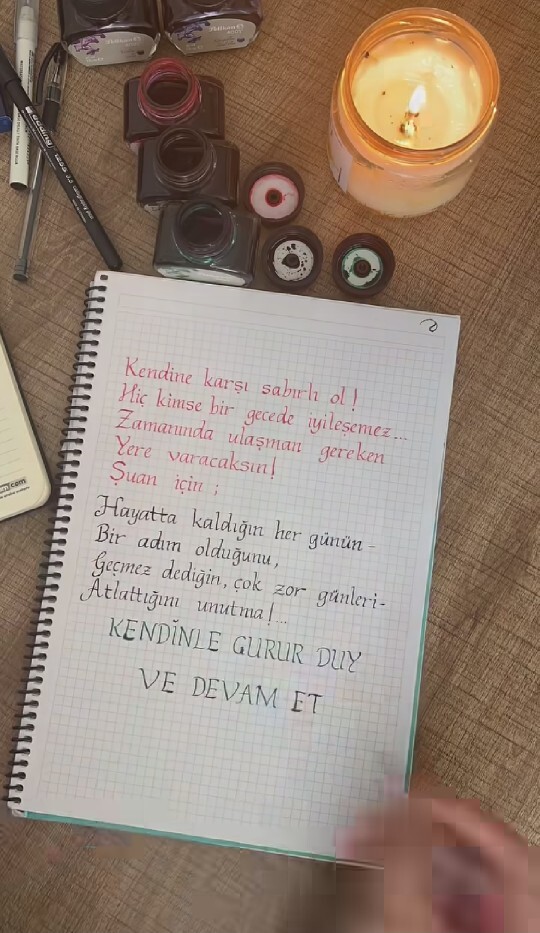 Kendine karşı sabırlı ol!
Hiç kimse bir gecede iyileşemez...
Zamanında ulaşman gereken
Yere varacaksın!
Şuan için ;
Hayatta kaldığın her günün -
Bir adım olduğunu,
Geçmez dediğin, çok zor günleri-
Atlattığını unutma!...
KENDİNLE GURUR DUY
VE DEVAM ET
edding